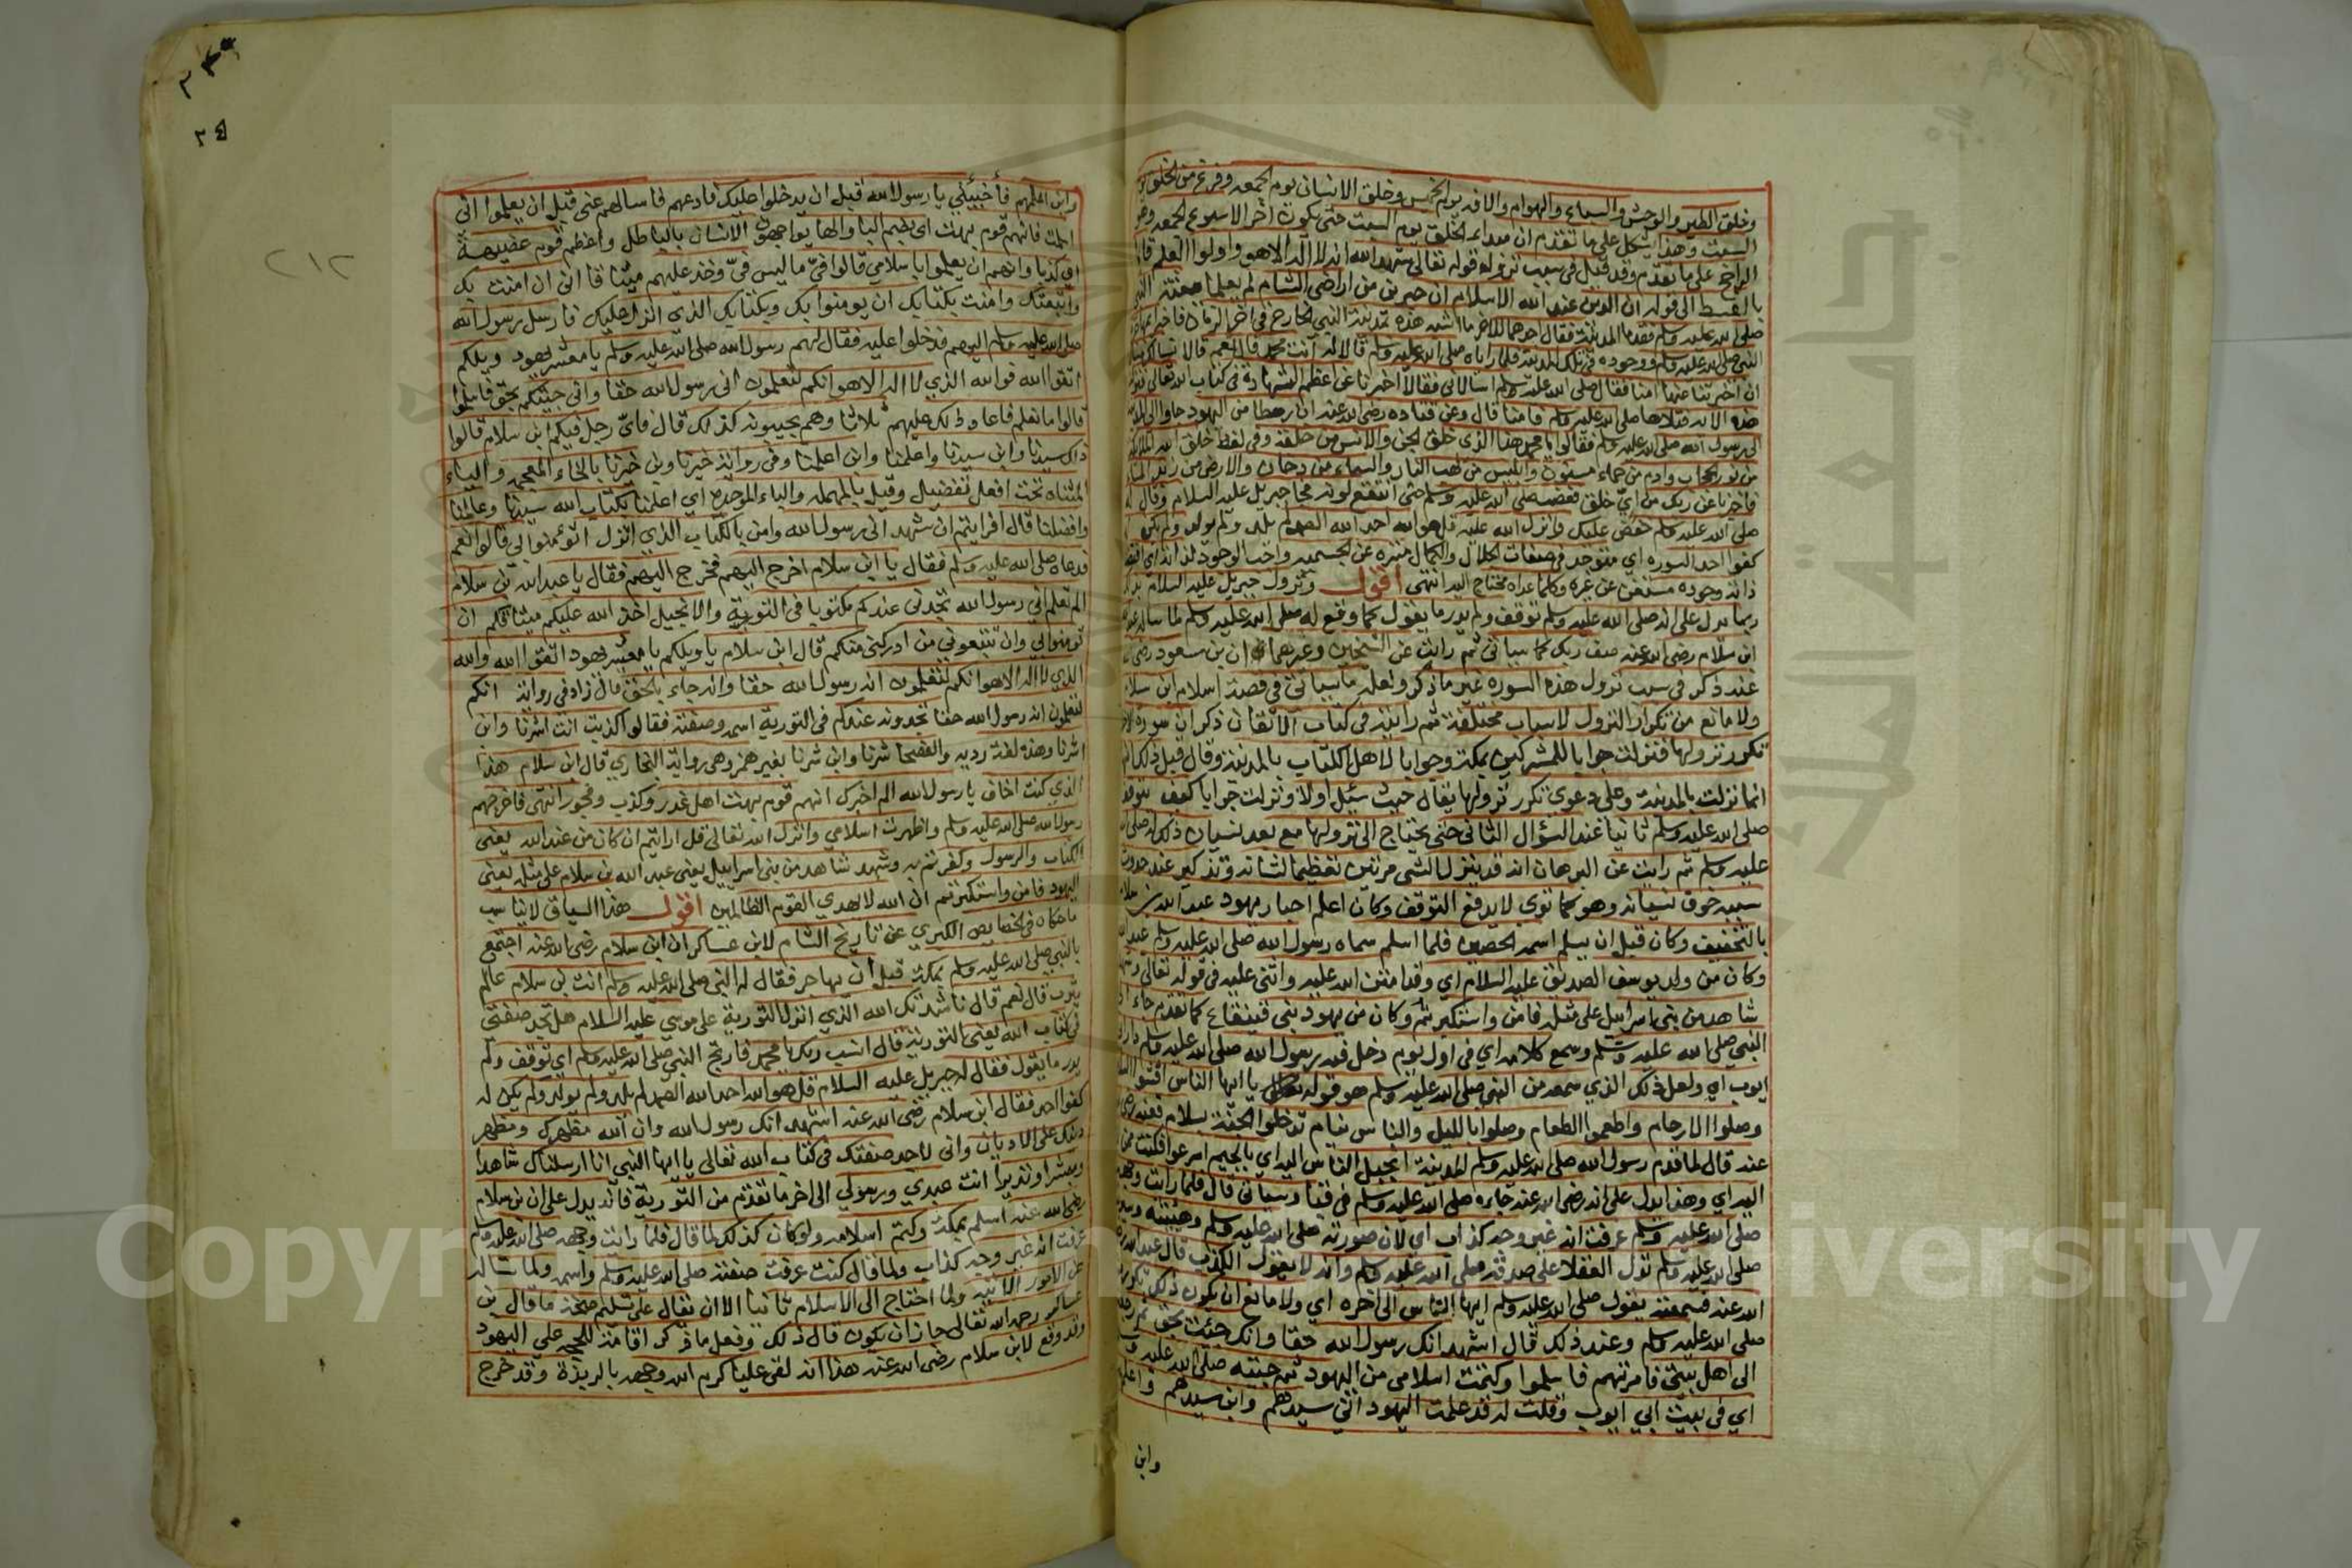 وخلق الطير والوحش والسباع والهوام والآفه يوم الخميس وخلق الانسان يوم الجمعه وفرغ من الخلق يوم
السبت وهذا يشكل على ما تقدم ان مبداء الخلق يوم السبت حتى يكون آخر الاسبوع الجمعه وهو
الراجح على ما تقدم وقد قيل في سبب نزوله قوله تعالى شهد الله انه لا اله الا هو واولوا العلم قائما
بالقسط الى قوله ان الدين عند الله الاسلام ان حبرين من اراضي الشام لم يعلما ببعثة النبي
صلى الله عليه وسلم فقدما المدينة فقال احدهما للاخر ما اشبه هذه بمدينة النبي الخارج في اخر الزمان فاخبرا
النبي صلى الله عليه وسلم ووجوده في تلك المدينة فلما راياه صلى الله عليه وسلم قالا له انت محمد قال نعم قالا نسالك
ان اخبرتنا عنها امنا فقال صلى الله عليه وسلم اسالاني فقالا اخبرنا عن اعظم الشهادة في كتاب الله تعالى فنزلت
هذه الايه فتلاها صلى الله عليه وسلم فامنا قال وعن قتاده رضي الله عنه ان رهطا من اليهود جاوا
الى رسول الله صلى الله عليه وسلم فقالوا يا محمد هذا الذي خلق الجن والانس من خلقه وفي لفظ خلق الله الملائكة
من نور الحجاب وادم من حماء مسنون وابليس من لهب النار والسماء من دخان والارض من زبد الماء
فاخبرنا عن ربك من اي خلق فغضب صلى الله عليه وسلم حتى انتقع لونه فجا جبريل عليه السلام وقال له
صلى الله عليه وسلم خفض عليك وانزل الله عليه قل هو الله احد الله الصمد لم يلد ولم يولد ولم يكن له
كفوا احد السوره اي متوحد في صفات الجلال والكمال منزه عن الجسميه واجب الوجود لذاته اي اقتضت
ذاته وجوده مستغن عن غيره وكلما عداه محتاج اليه انتهى اقول ونزول جبريل عليه السلام بذلك
ربما يدل على انه صلى الله عليه وسلم توقف ولم يدر ما يقول كما وقع له صلى الله عليه وسلم لما ساله عبد الله
ابن سلام رضي الله عنه صف ربك كما سياتي ثم رايت عن الشيخين وغيرهما ان بن سعود رضي الله
عنه ذكر في سبب نزول هذه السوره غير ما ذكر ولعله ما سياتي في قصة اسلام ابن سلام
ولا مانع من تكرار النزول لاسباب مختلفة ثم رايته في كتاب الاتقان ذكر ان سورة الاخلاص
تكرر نزولها فنزلت جوابا للمشركين بمكة وجوابا لاهل الكتاب بالمدينة وقال قبل ذلك انها
انما نزلت بالمدينة وعلى دعوى تكرر نزولها يقال حيث سئل اولا ونزلت جوابا كيف توقف
صلى الله عليه وسلم ثانيا عند السؤال الثاني حتى يحتاج الى نزولها مع بعد نسيان ذلك له صلى الله
عليه وسلم ثم رايت عن البرهان انه قد ينزل الشي مرتين تعظيما لشانه وتذكير عند حدوث
سببه خوف نسيانه وهو كما ترى لا يدفع التوقف وكان اعلم احبار يهود عبد الله بن سلام
بالتخفيف وكان قبل ان يسلم اسمه الحصين فلما اسلم سماه رسول الله صلى الله عليه وسلم عبد الله
وكان من ولد يوسف الصديق عليه السلام اي وقد امتن الله عليه واثنى عليه في قوله تعالى وشهد
شاهد من بني اسرايل على مثله فامن واستكبرتم وكان من يهود بني قينقاع كما تقدم جاء الى
النبي صلى الله عليه وسلم وسمع كلامه اي في اول يوم دخل فيه رسول الله صلى الله عليه وسلم دار ابي
ايوب اي ولعل ذلك الذي سمعه من النبي صلى الله عليه وسلم هو قوله يا ايها الناس افشوا السلام
وصلوا الارحام واطعموا الطعام وصلوا بالليل والناس نيام تدخلوا الجنة بسلام فعنه رضي الله
عنه قال لما قدم رسول الله صلى الله عليه وسلم المدينة انجبل الناس اليه اي بالجيم اسرعوا فكنت ممن
اليه اي وهذا يدل على انه رضي الله عنه جاءه صلى الله عليه وسلم في قبا وسياتي قال فلما رايت وجهه
صلى الله عليه وسلم عرفت انه غير وجه كذاب اي لان صورته صلى الله عليه وسلم وهيئته وسمته
صلى الله عليه وسلم تدل العقلا على صدقه صلى الله عليه وسلم وانه لا يقول الكذب قال عبد الله
الله عنه فسمعته يقول صلى الله عليه وسلم ايها الناس الى اخره اي ولا مانع ان يكون ذلك تكرر
صلى الله عليه وسلم وعند ذلك قال اشهد انك رسول الله حقا وانك جئت بحق ثم رجعت
الى اهل بيتي فامرتهم فاسلموا وكتمت اسلامي من اليهود ثم جيته صلى الله عليه وسلم
اي في بيت ابي ايوب وقلت له قد علمت اليهود اني سيدهم وابن سيدهم واعلمهم
وابن
٢٤٩
٢٤
٢١٢
وابن اعلمهم فأخبئني يا رسول الله قبل ان يدخلوا عليك فادعهم فاسالهم عني قبل ان يعلموا اني
اسلمت فانهم قوم بهت اي بضم البا والها يواجهون الانسان بالباطل واعظم قوم عضيهة
اي كذبا وانهم ان يعلموا باسلامي قالوا فيّ ما ليس فيّ وخذ عليهم ميثاقا اني ان امنت بك
واتبعتك وامنت بكتابك ان يومنوا بك وبكتابك الذي انزل عليك فارسل رسول الله
صلى الله عليه وسلم اليهم فدخلوا عليه فقال لهم رسول الله صلى الله عليه وسلم يا معشر يهود ويلكم
اتقوا الله فوالله الذي لا اله الا هو انكم لتعلمون اني رسول الله حقا واني جيتكم بحق فاسلموا
قالوا ما نعلم فاعاد ذلك عليهم ثلاثا وهم يجيبونه كذلك قال فاي رجل فيكم ابن سلام قالوا
ذاك سيدنا وابن سيدنا واعلمنا وابن اعلمنا وفي رواية خيرنا وبن خيرنا بالخاء المعجمه والياء
المثناه تحت افعل تفضيل وقيل بالمهمله والباء الموحده اي اعلمنا بكتاب الله سيدنا وعالمنا
وافضلنا قال افرايتم ان شهد اني رسول الله وامن بالكتاب الذي انزل اتؤمنوا بي قالوا نعم
فدعاه صلى الله عليه وسلم فقال يا ابن سلام اخرج اليهم فخرج اليهم فقال يا عبد الله بن سلام
الم تعلم اني رسول الله تجدني عندكم مكتوبا في التورية والانجيل اخذ الله عليكم ميثاقكم ان
تومنوا بي وان تتبعوني من ادركني منكم قال ابن سلام يا ويلكم يا معشر يهود اتقوا الله والله
الذي لا اله الا هو انكم لتعلمون انه رسول الله حقا وانه جاء بالحق قال زاد في رواية انكم
لتعلمون انه رسول الله حقا تجدونه عندكم في التورية اسمه وصفته فقالوا كذبت انت اشرنا وابن
اشرنا وهذه لغة رديه والفصحا شرنا وابن شرنا بغير همز وهي رواية البخاري قال ابن سلام هذا
الذي كنت اخاف يا رسول الله الم اخبرك انهم قوم بهت اهل غدر وكذب وفجور انتهى فاخرجهم
رسول الله صلى الله عليه وسلم واظهرت اسلامي وانزل الله تعالى قل ارايتم ان كان من عند الله يعني
الكتاب والرسول وكفرتم به وشهد شاهد من بني اسراييل يعني عبد الله بن سلام على مثله يعني
اليهود فامن واستكبرتم ان الله لا يهدي القوم الظالمين اقول هذا السياق لا يناسب
ما حكاه في الخصايص الكبرى عن تاريخ الشام لابن عساكر ان ابن سلام رضي الله عنه اجتمع
بالنبي صلى الله عليه وسلم بمكة قبل ان يهاجر فقال له النبي صلى الله عليه وسلم انت بن سلام عالم
يثرب قال نعم قال ناشدتك الله الذي انزل التورية على موسى عليه السلام هل تجد صفتي
في كتاب الله يعني التورية قال انسب ربك يا محمد فارتج النبي صلى الله عليه وسلم اي توقف ولم
يدر ما يقول فقال له جبريل عليه السلام قل هو الله احد الله الصمد لم يلد ولم يولد ولم يكن له
كفوا احد فقال ابن سلام رضي الله عنه اشهد انك رسول الله وان الله مظهرك ومظهر
دينك على الاديان واني لاجد صفتك في كتاب الله تعالى يا ايها النبي انا ارسلناك شاهدا
ومبشرا ونذيرا انت عبدي ورسولي الى اخر ما تقدم من التورية فانه يدل على ان بن سلام
رضي الله عنه اسلم بمكة وكتم اسلامه ولو كان كذلك لما قال فلما رايت وجهه صلى الله عليه وسلم
عرفت انه غير وجه كذاب ولما قال كنت عرفت صفته صلى الله عليه وسلم واسمه ولما ساله
عن الامور الاتيه ولما احتاج الى الاسلام ثانيا الا ان يقال على تسليم صحة ما قال بن
عساكر رحمه الله تعالى جاز ان يكون قال ذلك وفعل ما ذكر اقامة للحجه على اليهود
وقد وقع لابن سلام رضي الله عنه هذا انه لقى عليا كرم الله وجهه بالربذة وقد خرج